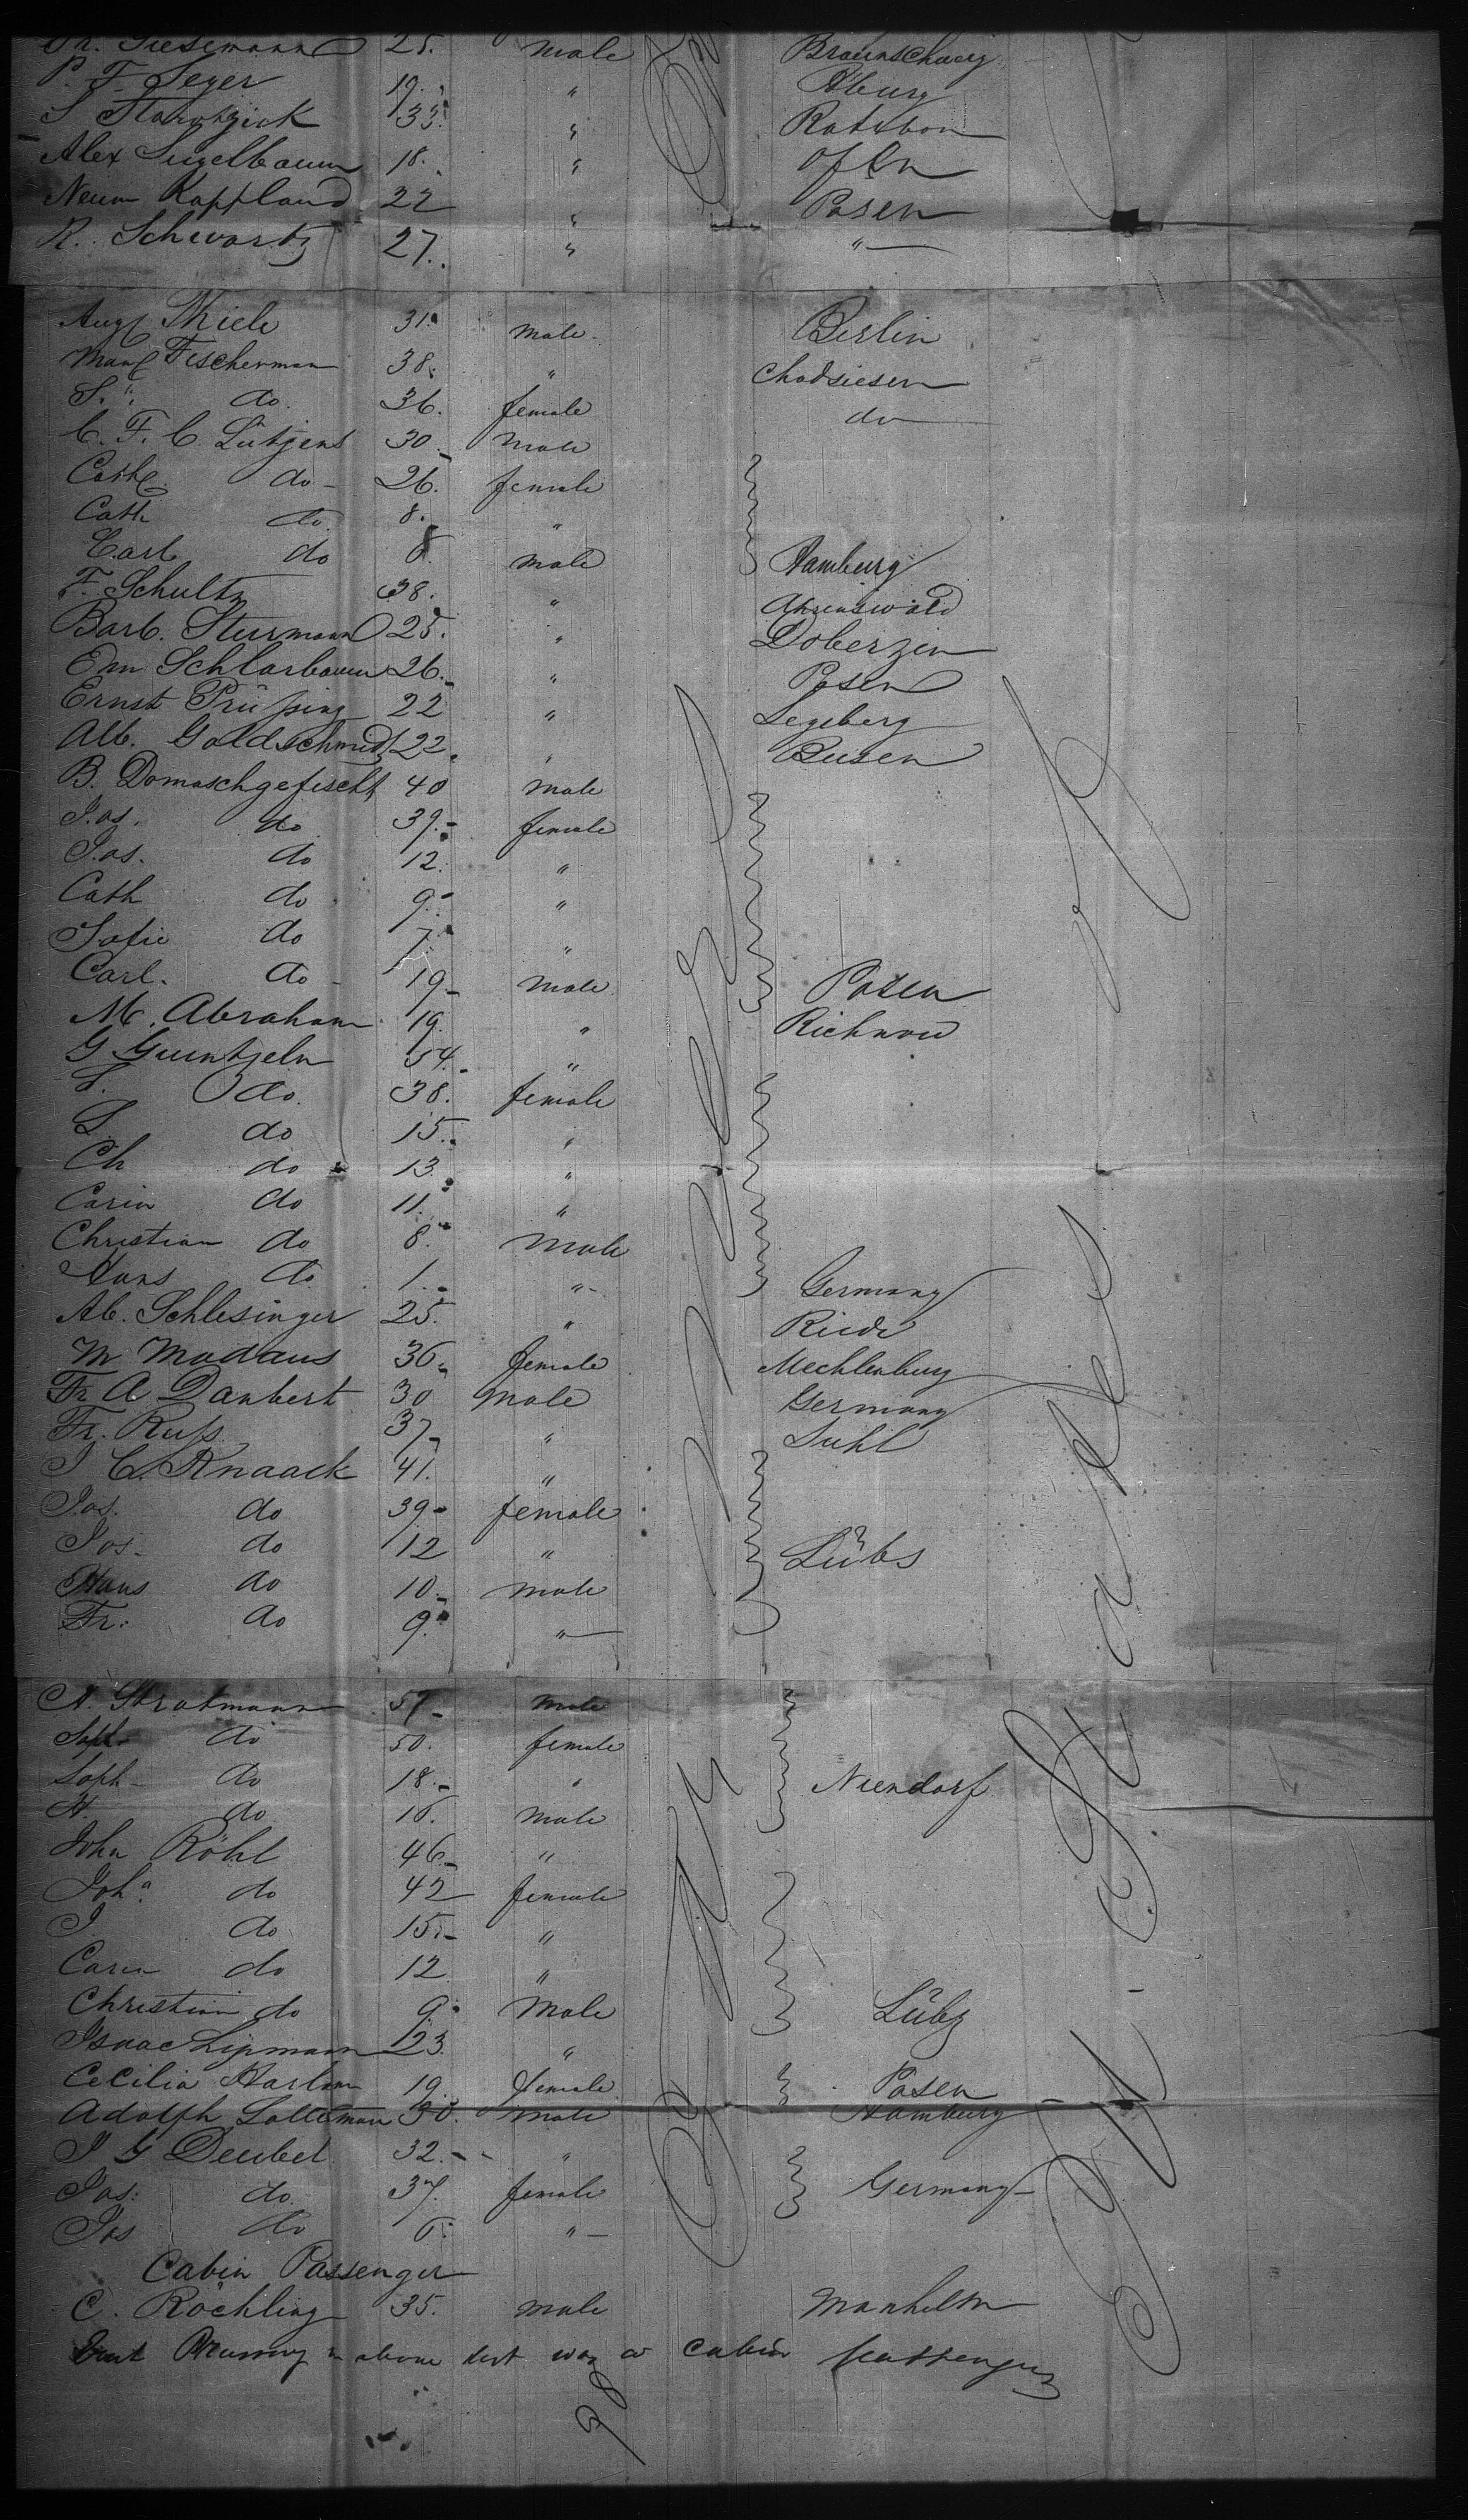 25. male Braunschweig
P. F. Seger 19. " Aburg
S 33. " Ratibon
Alex 18. " Ofen
Neum Kappland 22 " Posen
R. Schwartz 27. " "
Augt Thiele 31. male Berlin
Manl Fischerman 38. " Chodsiesen
S. " do 36. female do
C. F. C. Lütjens 30 male
Cathe do 26. female
Cath do 8. "
Carl do 8 male Hamburg
F. Schultz 38. " Ahrenswald
Barb. Sturmann 25. " Doberzin
Em Schlarbaum 26. " Posen
Ernst Prüssing 22 " Segeberg
Alb. Goldschmidt 22. " Busen
B. Domaschgefischt 40 male
Jos. do 39. female
Jos. do 12. "
Cath do 9. "
Sofie do 7. "
Carl. do 19 male Posen
M. Abraham 19. " Richnow
G Guintzeln 54. "
S. do. 38. female
S do 15. "
Ch do 13. "
Carin do 11. "
Christian do 8. Male
Hans do 1. " Germany
Ab. Schlesinger 25. "
M Madaus 36. female Mecklenburg
Fr A Danbert 30 male Germany
Fr. Russ 37 " Suhl
J C. Knaack 41. "
Jos. do 39 female
Jos. do 12 " Lübs
Hans do 10 male
Fr: do 9. "
A. Stratmann 57 male
Soph do 50. female
Soph do 18. " Niendorf
H do 16. male
John Röhl 46 "
Joha do 42 female
J do 15. "
Caren do 12 "
Christian do 9. Male Lübz
Isaac Lipmann 23. "
Cecilia 19. female Posen
Adolph 30. male Hamburg
J G Deubel 32. "
Jos: do. 37. female Germany
Jos do 6. "
Cabin Passenger
C. Röchling 35. male Manheim
above list was a cabin passenger